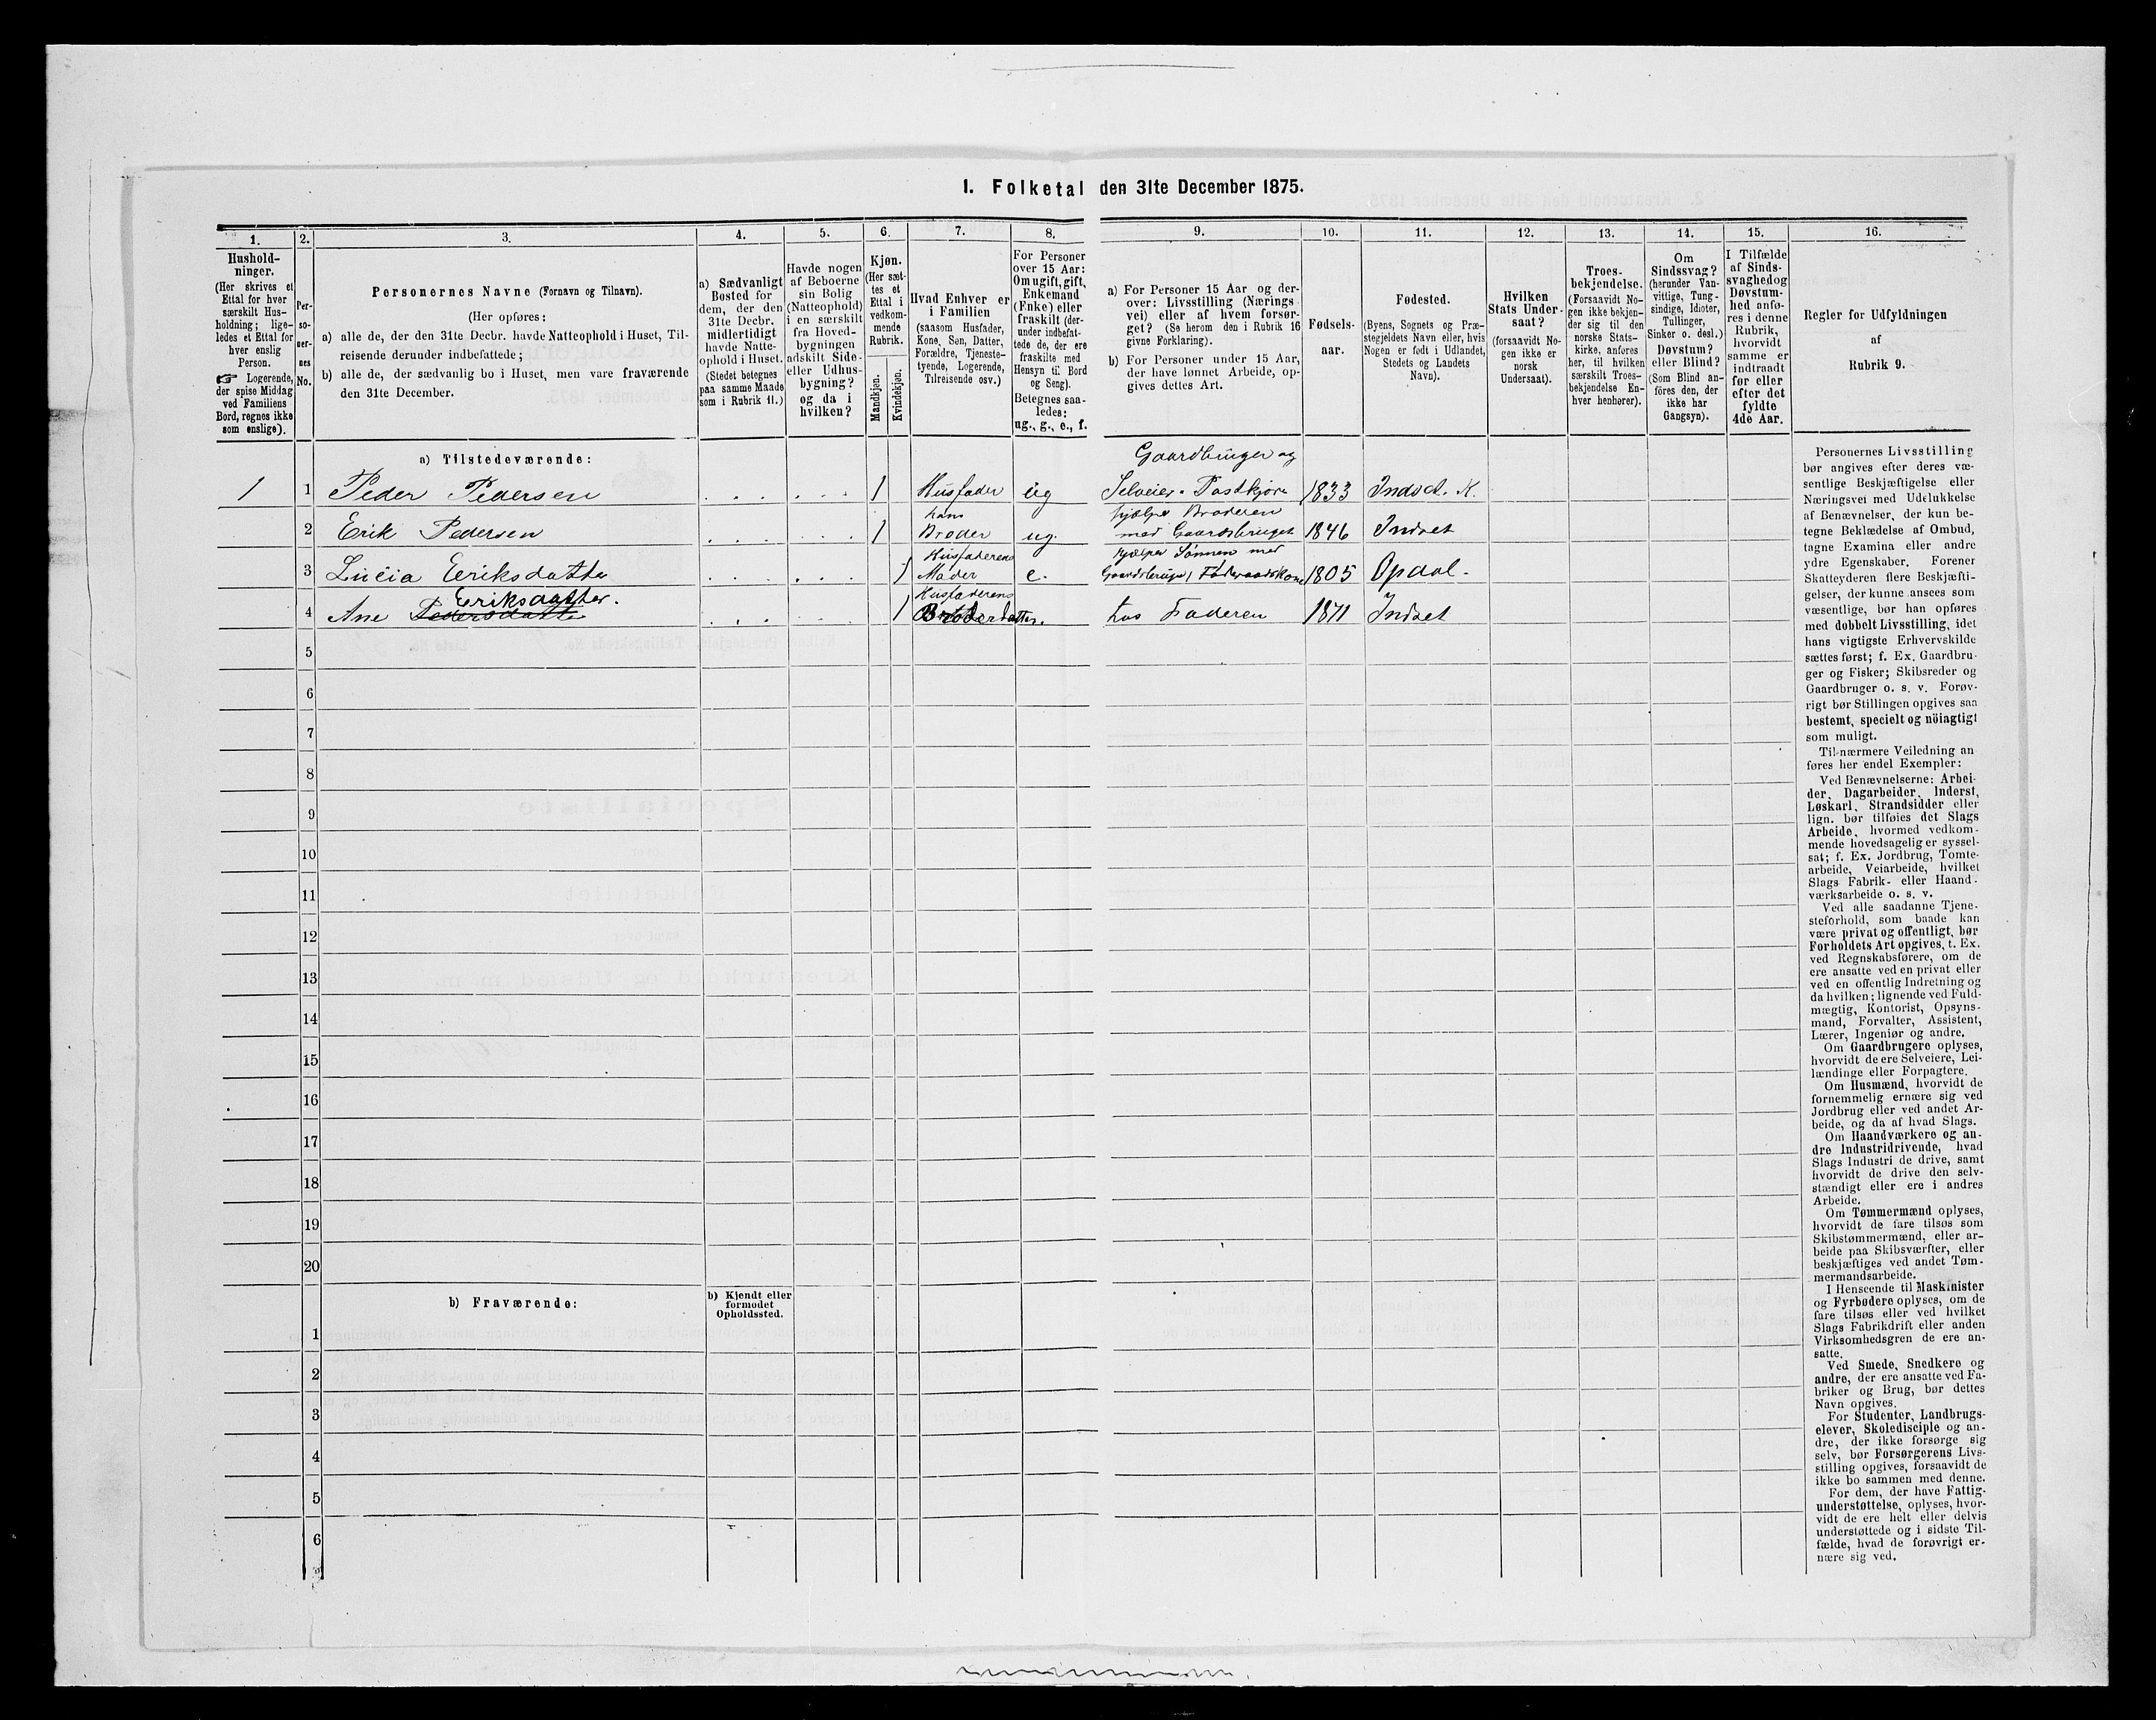 1. Folketal den 31te December 1875.
1. 2. 3. 4. 5. 6. 7. 8. 9. 10. 11. 12. 13. 14. 15. 16.
Hushold-
ninger.
(Her skrives et
Ettal for hver
særskilt Hus-
holdning; lige-
ledes et Ettal for
hver enslig
Person.
☞ Logerende,
der spise Middag
ved Familiens
Bord, regnes ikke
som enslige).
Per-
so-
ner-
nes
No.
Personernes Navne (Fornavn og Tilnavn).
(Her opføres:
a) alle de, der den 31te Decbr. havde Natteophold i Huset, Til-
reisende derunder indbefattede;
b) alle de, der sædvanlig bo i Huset, men vare fraværende
den 31te December.
a) Sædvanligt
Bosted for
dem, der den
31te Decbr.
midlertidigt
havde Natte-
ophold i Huset.
(Stedet betegnes
paa samme Maade
som i Rubrik 11.)
Havde nogen
af Beboerne
sin Bolig
(Natteophold)
i en særskilt
fra Hoved-
bygningen
adskilt Side-
eller Udhus-
bygning?
og da i
hvilken?
Kjøn.
(Her sæt-
tes et
Ettal i
vedkom-
mende
Rubrik.
Mandkjøn.
Kvindekjøn.
Hvad Enhver er
i Familien
(saasom Husfader,
Kone, Søn, Datter,
Forældre, Tjeneste-
tyende, Logerende,
Tilreisende osv.)
For Personer
over 15 Aar:
Om ugift, gift,
Enkemand
(Enke) eller
fraskilt (der-
under indbefat-
tede de, der ere
fraskilte med
Hensyn til Bord
og Seng).
Betegnes saa-
ledes:
ug., g., e., f.
a) For Personer 15 Aar og der-
over: Livsstilling (Nærings
vei) eller af hvem forsør-
get? (Se herom den i Rubrik 16
givne Forklaring).
b) For Personer under 15 Aar,
der have lønnet Arbeide, op-
gives dettes Art.
Fødsels-
aar.
Fødested.
(Byens, Sognets og Præ-
stegjeldets Navn eller, hvis
Nogen er født i Udlandet,
Stedets og Landets
Navn).
Hvilken
Stats Under-
saat?
(forsaavidt No-
gen ikke er
norsk
Undersaat).
Troes-
bekjendelse.
(Forsaavidt No-
gen ikke bekjen-
der sig til den
norske Stats-
kirke, anføres
her, til hvilken
særskilt Troes-
bekjendelse En-
hver henhører).
Om
Sindssvag?
(herunder Van-
vittige, Tung-
sindige, Idioter,
Tullinger,
Sinker o. desl.)
Døvstum?
eller Blind?
(Som Blind an-
føres den, der
ikke har
Gangsyn).
I Tilfælde
af Sinds-
svaghed og
Døvstum-
hed anfø-
res i denne
Rubrik,
hvorvidt
samme er
indtraadt
før eller
efter det
fyldte
4de Aar.
Regler for Udfyldningen
af
Rubrik 9.
a) Tilstedeværende:
Gaardbruger og
1 1 Peder Pedersen 1 Husfader ug Selveier. Postkjøre 1833 Indset. K.
hans hjælper Broderen
2 Erik Pedersen 1 Broder ug. med Gaardsbruget 1846 Indset
Husfaderens hjælper Sønnen med
3 Lucia Eriksdatter 1 Moder e. Gaardsbruget, Føderaadskone 1805 Opdal.
Eriksdatter. Husfaderens
4 Ane Pedersdatter 1 Broderdatter. hos Faderen 1871 Indset
5
6
7
8
9
10
11
12
13
14
15
16
17
18
19
20
b) Fraværende:
b) Kjendt eller
formodet
Opholdssted.
1
2
3
4
5
6
Personernes Livsstilling
bør angives efter deres væ-
sentlige Beskjæftigelse eller
Næringsvei med Udelukkelse
af Benævnelser, der kun be-
tegne Beklædelse af Ombud,
tagne Examina eller andre
ydre Egenskaber. Forener
Skatteyderen flere Beskjæfti-
gelser, der kunne ansees som
væsentlige, bør han opføres
med dobbelt Livsstilling, idet
hans vigtigste Erhvervskilde
sættes først; f. Ex. Gaardbru-
ger og Fisker; Skibsreder og
Gaardbruger o. s. v. Forøv-
rigt bør Stillingen opgives saa
bestemt, specielt og nöiagtigt
som muligt.
Til nærmere Veiledning an
føres her endel Exempler:
Ved Benævnelserne: Arbei-
der, Dagarbeider, Inderst,
Løskarl, Strandsidder eller
lign. bør tilføies det Slags
Arbeide, hvormed vedkom-
mende hovedsagelig er syssel-
sat; f. Ex. Jordbrug, Tomte-
arbeide, Veiarbeide, hvilket
Slags Fabrik- eller Haand-
værksarbeide o. s. v.
Ved alle saadanne Tjene-
steforhold, som baade kan
være privat og offentligt, bør
Forholdets Art opgives, t. Ex.
ved Regnskabsførere, om de
ere ansatte ved en privat eller
ved en offentlig Indretning og
da hvilken; lignende ved Fuld-
mægtig, Kontorist, Opsyns-
mand, Forvalter, Assistent,
Lærer, Ingeniør og andre.
Om Gaardbrugere oplyses,
hvorvidt de ere Selveiere, Lei-
lændinge eller Forpagtere.
Om Husmænd, hvorvidt de
fornemmelig ernære sig ved
Jordbrug eller ved andet Ar-
beide, og da af hvad Slags.
Om Haandværkere og an-
dre Industridrivende, hvad
Slags Industri de drive, samt
hvorvidt de drive den selv-
stændigt eller ere i andres
Arbeide.
Om Tømmermænd oplyses,
hvorvidt de fare tilsøs som
Skibstømmermænd, eller ar-
beide paa Skibsværfter, eller
beskjæftiges ved andet Tøm-
mermandsarbeide.
I Henseende til Maskinister
og Fyrbødere oplyses, om de
fare tilsøs eller ved hvilket
Slags Fabrikdrift eller anden
Virksomhedsgren de ere an-
satte.
Ved Smede, Snedkere og
andre, der ere ansatte ved Fa-
briker og Brug, bør dettes
Navn opgives.
For Studenter, Landbrugs-
elever, Skoledisciple og an-
dre, der ikke forsørge sig
selv, bør Forsørgerens Livs-
stilling opgives, forsaavidt de
ikke bo sammen med denne.
For dem, der have Fattig-
understøttelse, oplyses, hvor-
vidt de ere helt eller delvis
understøttede og i sidste Til-
fælde, hvad de forøvrigt er-
nære sig ved.